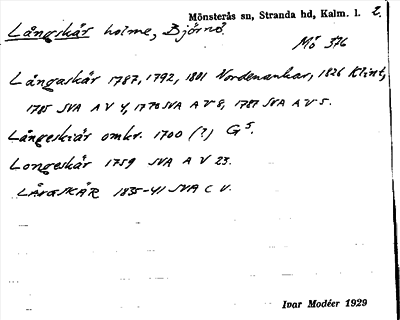 Mönsterås sn, Stranda hd, Kalm. l. 2.
Långskär holme, Björnö
Mö 376
Långaskär 1787, 1792, 1801 Nordenankar, 1826 Klint,
1785 SVA A V 4, 1770 SVA A V 8, 1787 SVA A V 5.
Långeskiär omkr. 1700 (?) G 5.
Longeskär 1759 SVA A V 23.
LÅNGSKÄR 1835-41 SVA C V.
Ivar Modéer 1929